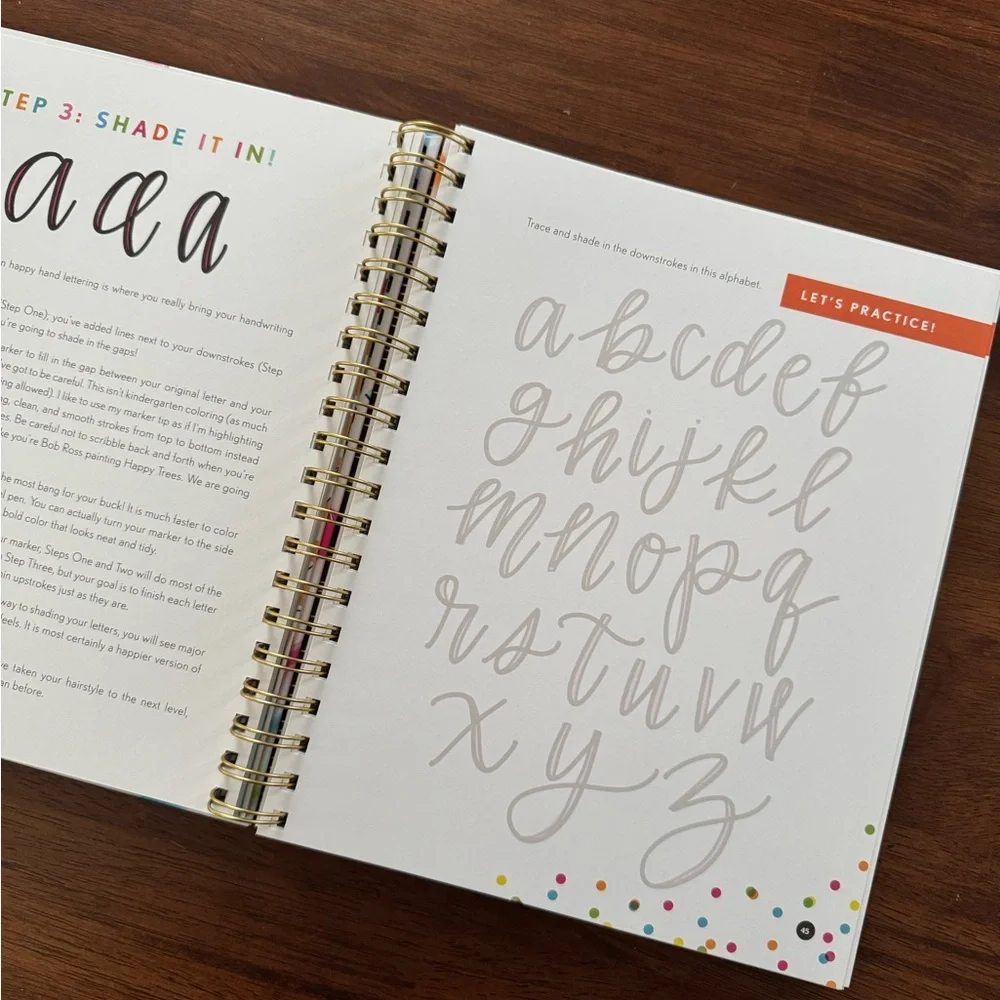 TEP 3: SHADE IT IN!
a a a
n happy hand lettering is where you really bring your handwriting
Step One); you've added lines next to your downstrokes (Step
u're going to shade in the gaps!
arker to fill in the gap between your original letter and your
've got to be careful. This isn't kindergarten coloring (as much
ing allowed). I like to use my marker tip as if I'm highlighting
ng, clean, and smooth strokes from top to bottom instead
es. Be careful not to scribble back and forth when you're
ke you're Bob Ross painting Happy Trees. We are going
he most bang for your buck! It is much faster to color
l pen. You can actually turn your marker to the side
bold color that looks neat and tidy.
ur marker, Steps One and Two will do most of the
n Step Three, but your goal is to finish each letter
in upstrokes just as they are.
way to shading your letters, you will see major
feels. It is most certainly a happier version of
ve taken your hairstyle to the next level,
an before.
Trace and shade in the downstrokes in this alphabet.
LET'S PRACTICE!
a b c d e f
g h i j k l
m n o p q
r s t u v w
x y z
45